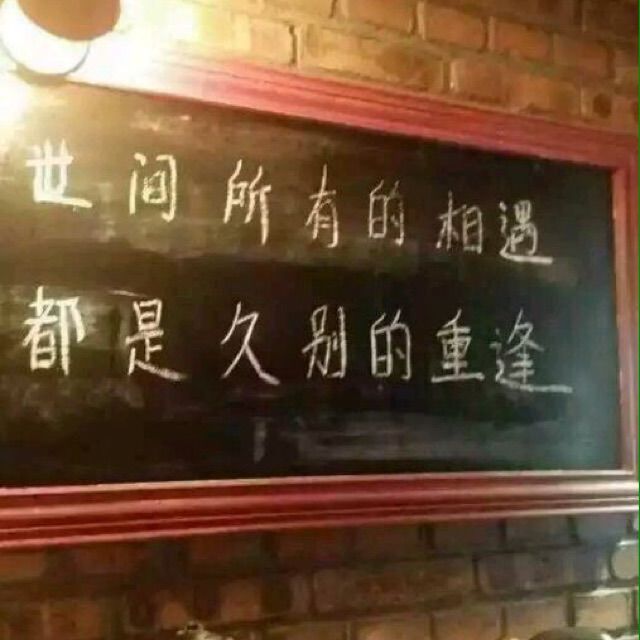 世间所有的相遇
都是久别的重逢